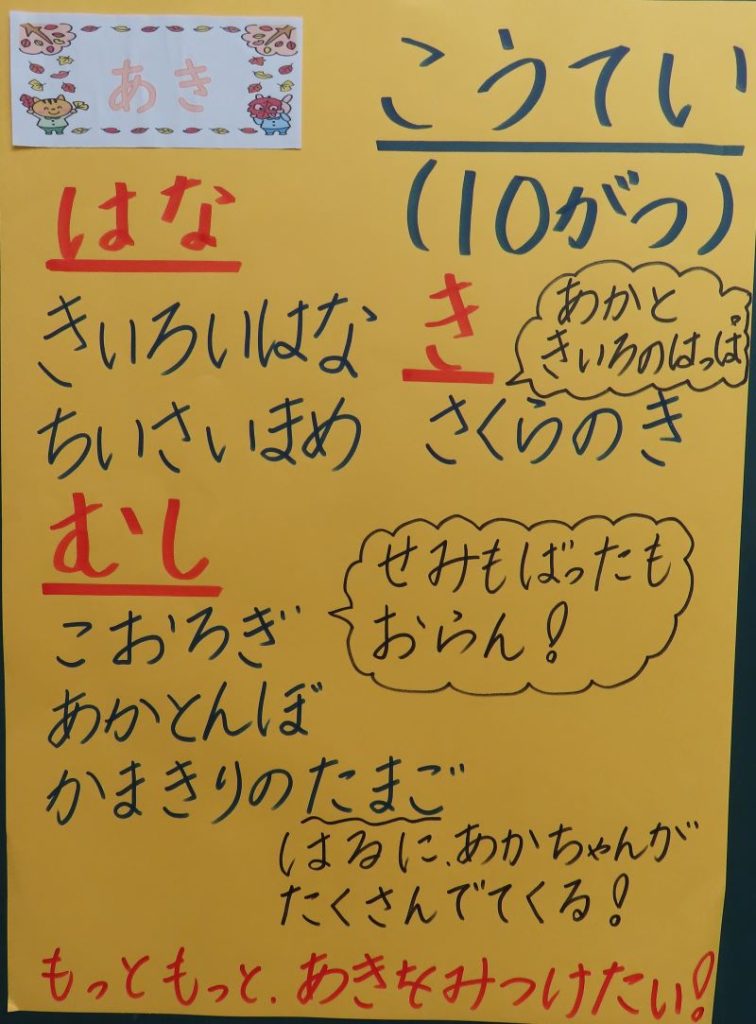 あき
こうてい
(10がつ)
はな
きいろいはな
ちいさいまめ
き
あかと
きいろのはっぱ
さくらのき
むし
こおろぎ
あかとんぼ
かまきりのたまご
せみもばったも
おらん!
はるに、あかちゃんが
たくさんでてくる!
もっともっと、あきをみつけたい!